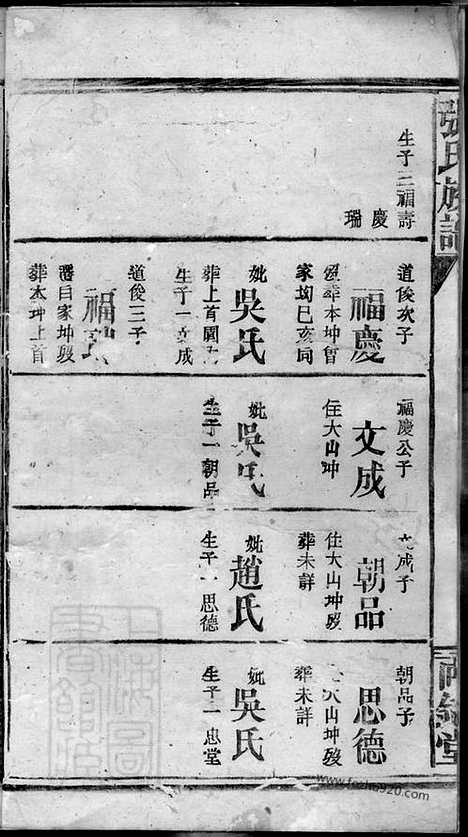 張氏族譜
生子三福壽
慶
瑞
道俊次子
福慶
歿葬本坤曾
家坳巳亥同
妣
吳氏
葬上首圓
生子一文成
道俊三子
福瑞
歿自家坤
葬本坤上首
福慶公子
文成
住大山坤
妣
吳氏
生子一朝品
文成子
朝品
住大山坤歿
葬未詳
妣
趙氏
生子一思德
朝品子
思德
大山坤歿
葬未詳
妣
吳氏
生子一忠堂
堂
www.fozhu920.com